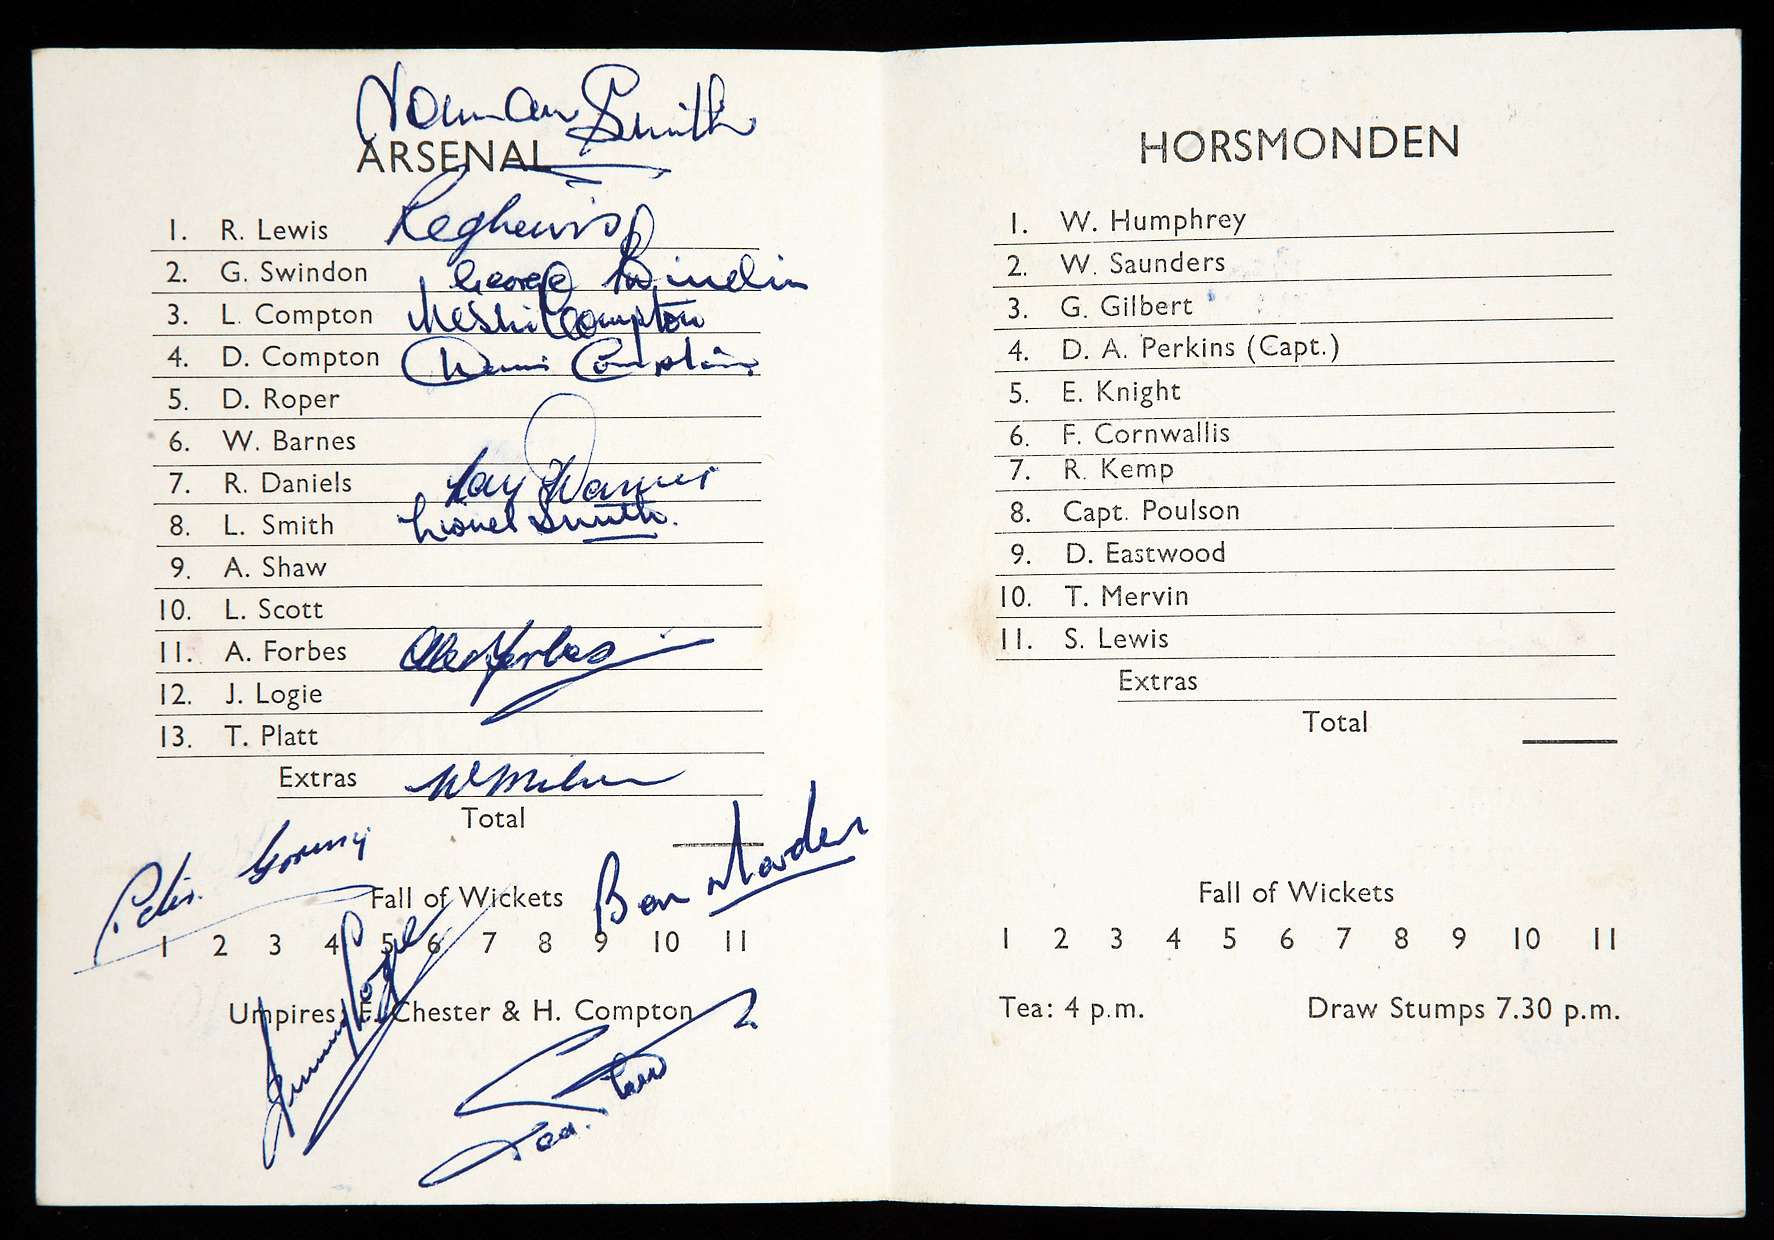 Norman Smith
ARSENAL
1. R. Lewis Reg Lewis
2. G. Swindon George
3. L. Compton Leslie Compton
4. D. Compton Denis Compton
5. D. Roper
6. W. Barnes
7. R. Daniels Ray Daniels
8. L. Smith Lionel Smith.
9. A. Shaw
10. L. Scott
11. A. Forbes Alex Forbes
12. J. Logie
13. T. Platt
Extras W Milne
Total
Peter Goring
Ben Marden
Fall of Wickets
1 2 3 4 5 6 7 8 9 10 11
Jimmy Logie
Umpires: F. Chester & H. Compton
Ted.
HORSMONDEN
1. W. Humphrey
2. W. Saunders
3. G. Gilbert
4. D. A. Perkins (Capt.)
5. E. Knight
6. F. Cornwallis
7. R. Kemp
8. Capt. Poulson
9. D. Eastwood
10. T. Mervin
11. S. Lewis
Extras
Total
Fall of Wickets
1 2 3 4 5 6 7 8 9 10 11
Tea: 4 p.m. Draw Stumps 7.30 p.m.